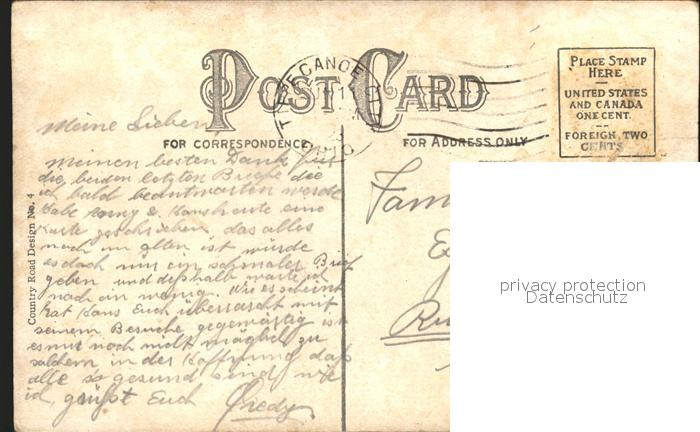 POST CARD
TIPPECANOE
PLACE STAMP
HERE
UNITED STATES
AND CANADA
ONE CENT.
FOREIGN, TWO
CENTS
FOR CORRESPONDENCE
FOR ADDRESS ONLY
Country Road Design No. 4
Meine Lieben,
Meinen besten Dank für
die beiden letzten Briefe die
ich bald beantworten werde
Habe & Hans heute eine
Karte geschrieben das alles
noch im alten ist würde
es doch nur ein schmaler Brief
geben und deßhalb warte ich
noch ein wenig. Wie es scheint
hat Hans Euch überrascht mit
seinem Besuche gegenwärtig ist
es mir noch nicht möglich zu
in der Hoffnung daß
alle so gesund sind wie
ich, grüßt Euch Fredy
Fam
Ru
privacy protection
Datenschutz